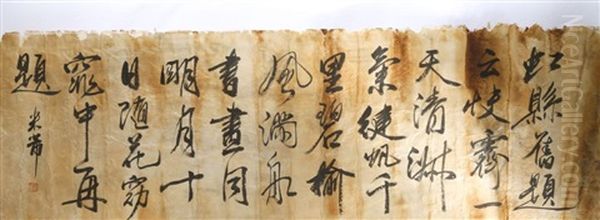 虹縣舊題
云快霽一
天清淑
氣健帆千
里碧榆
風滿船
書畫同
明月十
日隨花窈
窕中再
題
米芾